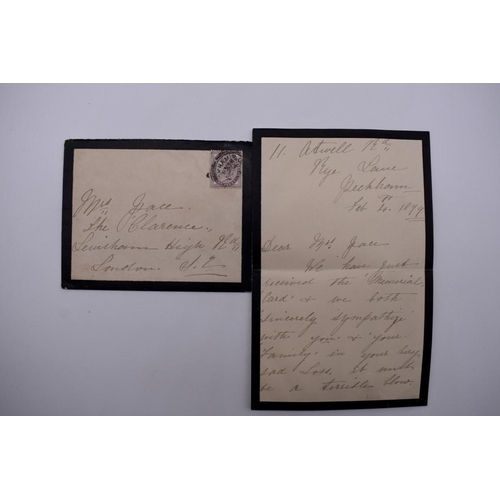 Mrs Jace.
The Clarence.
Lewisham High Rd
London. S.E
11. Atwell Rd
Rye Lane
Peckham
Feb 4. 1899
Dear Mrs Jace
We have just
received the "Memorial
Card" & we both
sincerely sympathize
with you & your
Family in your very
sad Loss, It must
be a terrible blow,